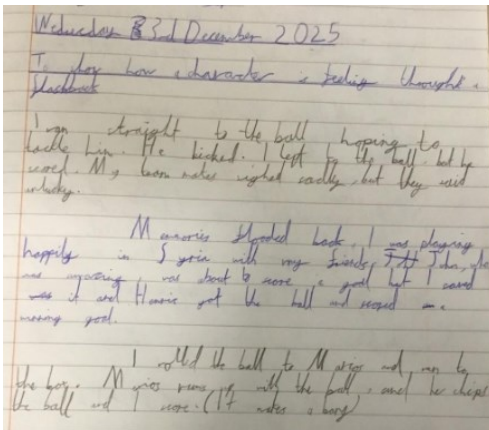 Wednesday 3rd December 2025
To show how a character is feeling through a
flashback
I ran straight to the ball hoping to
tackle him. He kicked. I left to the ball but he
scored. My team mates sighed sadly, but they said
unlucky.
Memories flooded back. I was playing
happily in Syria with my friends. John, who
was amazing, was about to score a goal but I saved
it and Hamie got the ball and scored a
winning goal.
I rolled the ball to Marios and ran to
the box. Marios runs up with the ball, and he chips
the ball and I score. (It makes a bang